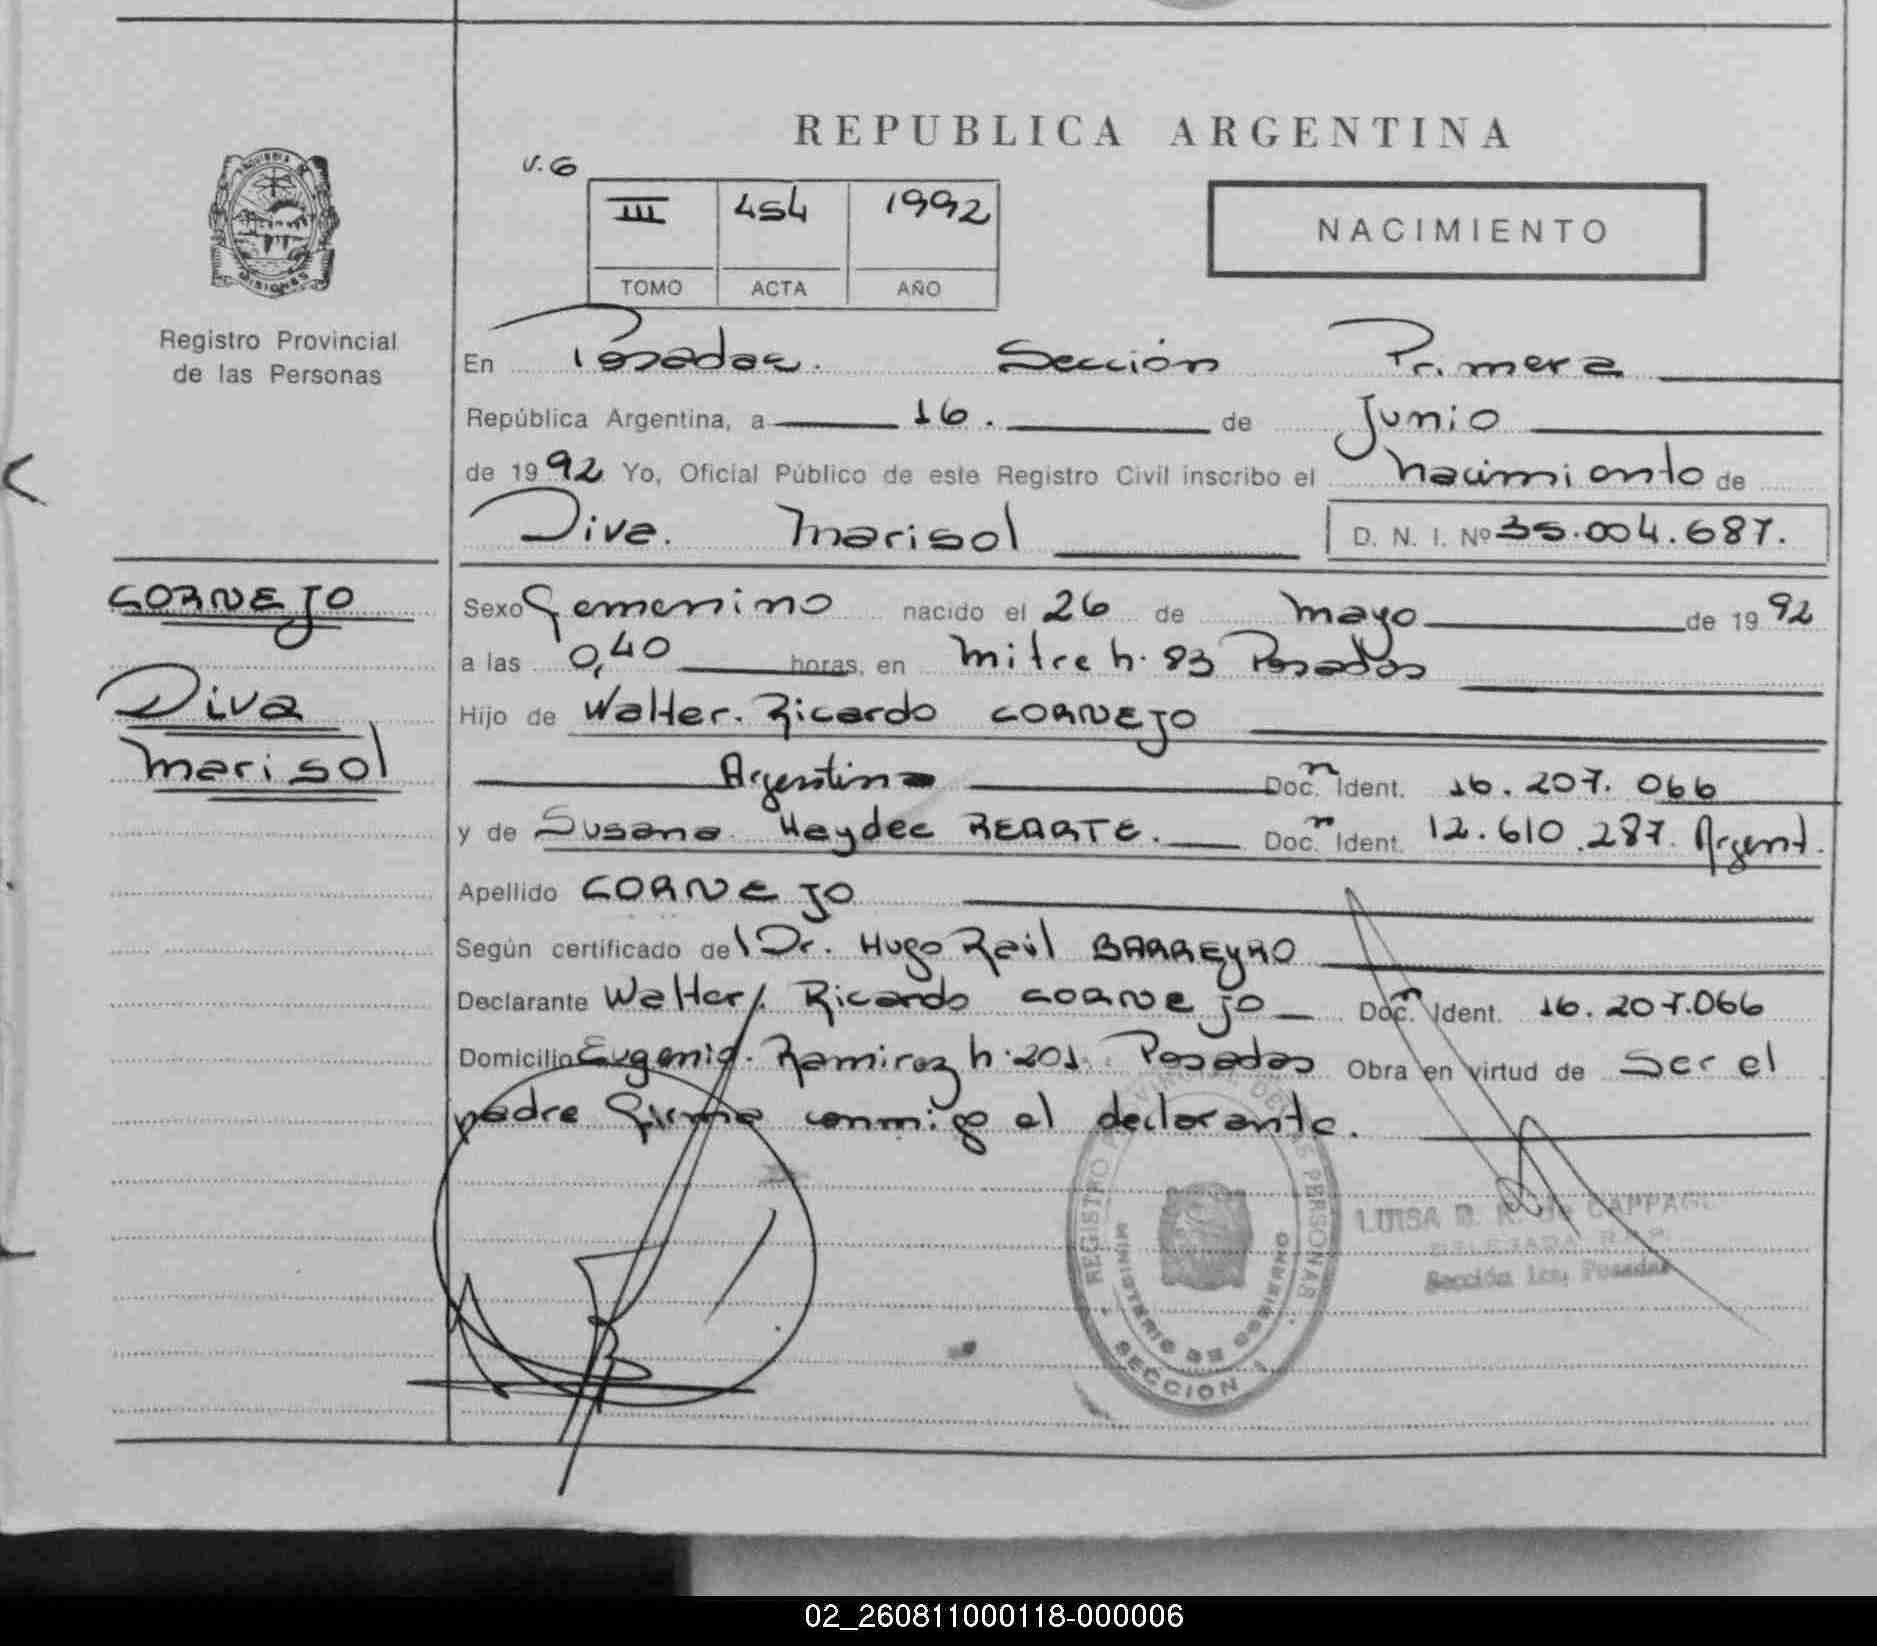 REPUBLICA ARGENTINA
V.6
III 454 1992
TOMO ACTA AÑO
NACIMIENTO
MISIONES
Registro Provincial
de las Personas
En Posadas. Sección Primera
República Argentina, a 16. de Junio
de 1992 Yo, Oficial Público de este Registro Civil inscribo el Nacimiento de
Diva. Marisol D. N. I. Nº 35.004.687.
CORNEJO
Diva
Marisol
Sexo Femenino nacido el 26 de Mayo de 1992
a las 0,40 horas, en Mitre h. 83 Posadas
Hijo de Walter. Ricardo CORNEJO
Argentino Doc.n Ident. 16.207.066
y de Susana Haydee REARTE. Doc.n Ident. 12.610.287. Argent.
Apellido CORNEJO
Según certificado del Dr. Hugo Raúl BARREYRO
Declarante Walter. Ricardo CORNEJO Doc.n Ident. 16.207.066
Domicilio Eugenio. Ramirez h. 201. Posadas Obra en virtud de Ser el
padre firma conmigo el declarante.
REGISTRO PROVINCIAL DE LAS PERSONAS
MINISTERIO DE GOBIERNO
SECCION 1
LUISA B. R. de
DELEGADA
Sección 1ra. Posadas
02_260811000118-000006